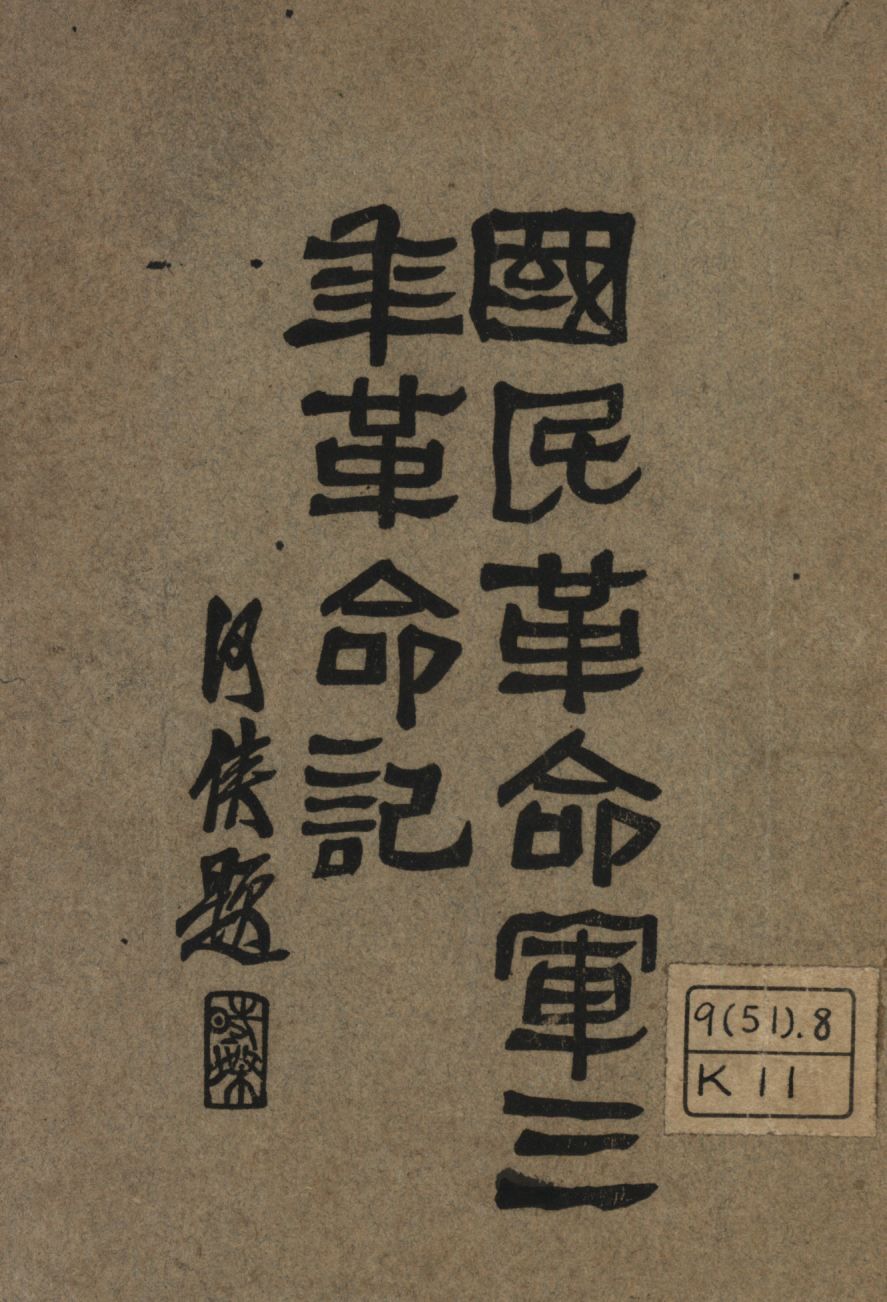 國民革命軍三
年革命記
何俠題
9(51).8
K 11